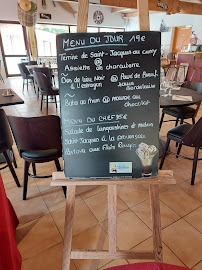 MENU DU JOUR 19€
Terrine de Saint-Jacques au curry
Assiette de charcuterie
Dos de lieu Noir @ Pavé de Bœuf
à l'estragon sauce
Bordelaise
Baba au rhum @ mousse au
chocolat
MENU DU CHEF 35€
Salade de langoustines et melon
Saint-Jacques à la provençale
Pavlova aux Fruits Rouges